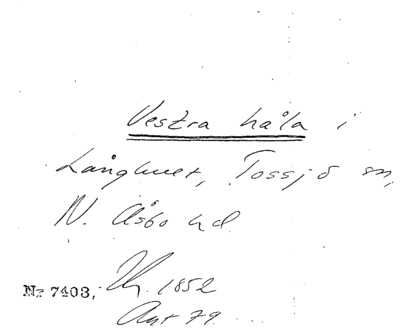 Vestra håla i
Långhult, Tossjö sn,
N. Åsbo hd
Nr 7403. 1852
Ant 79